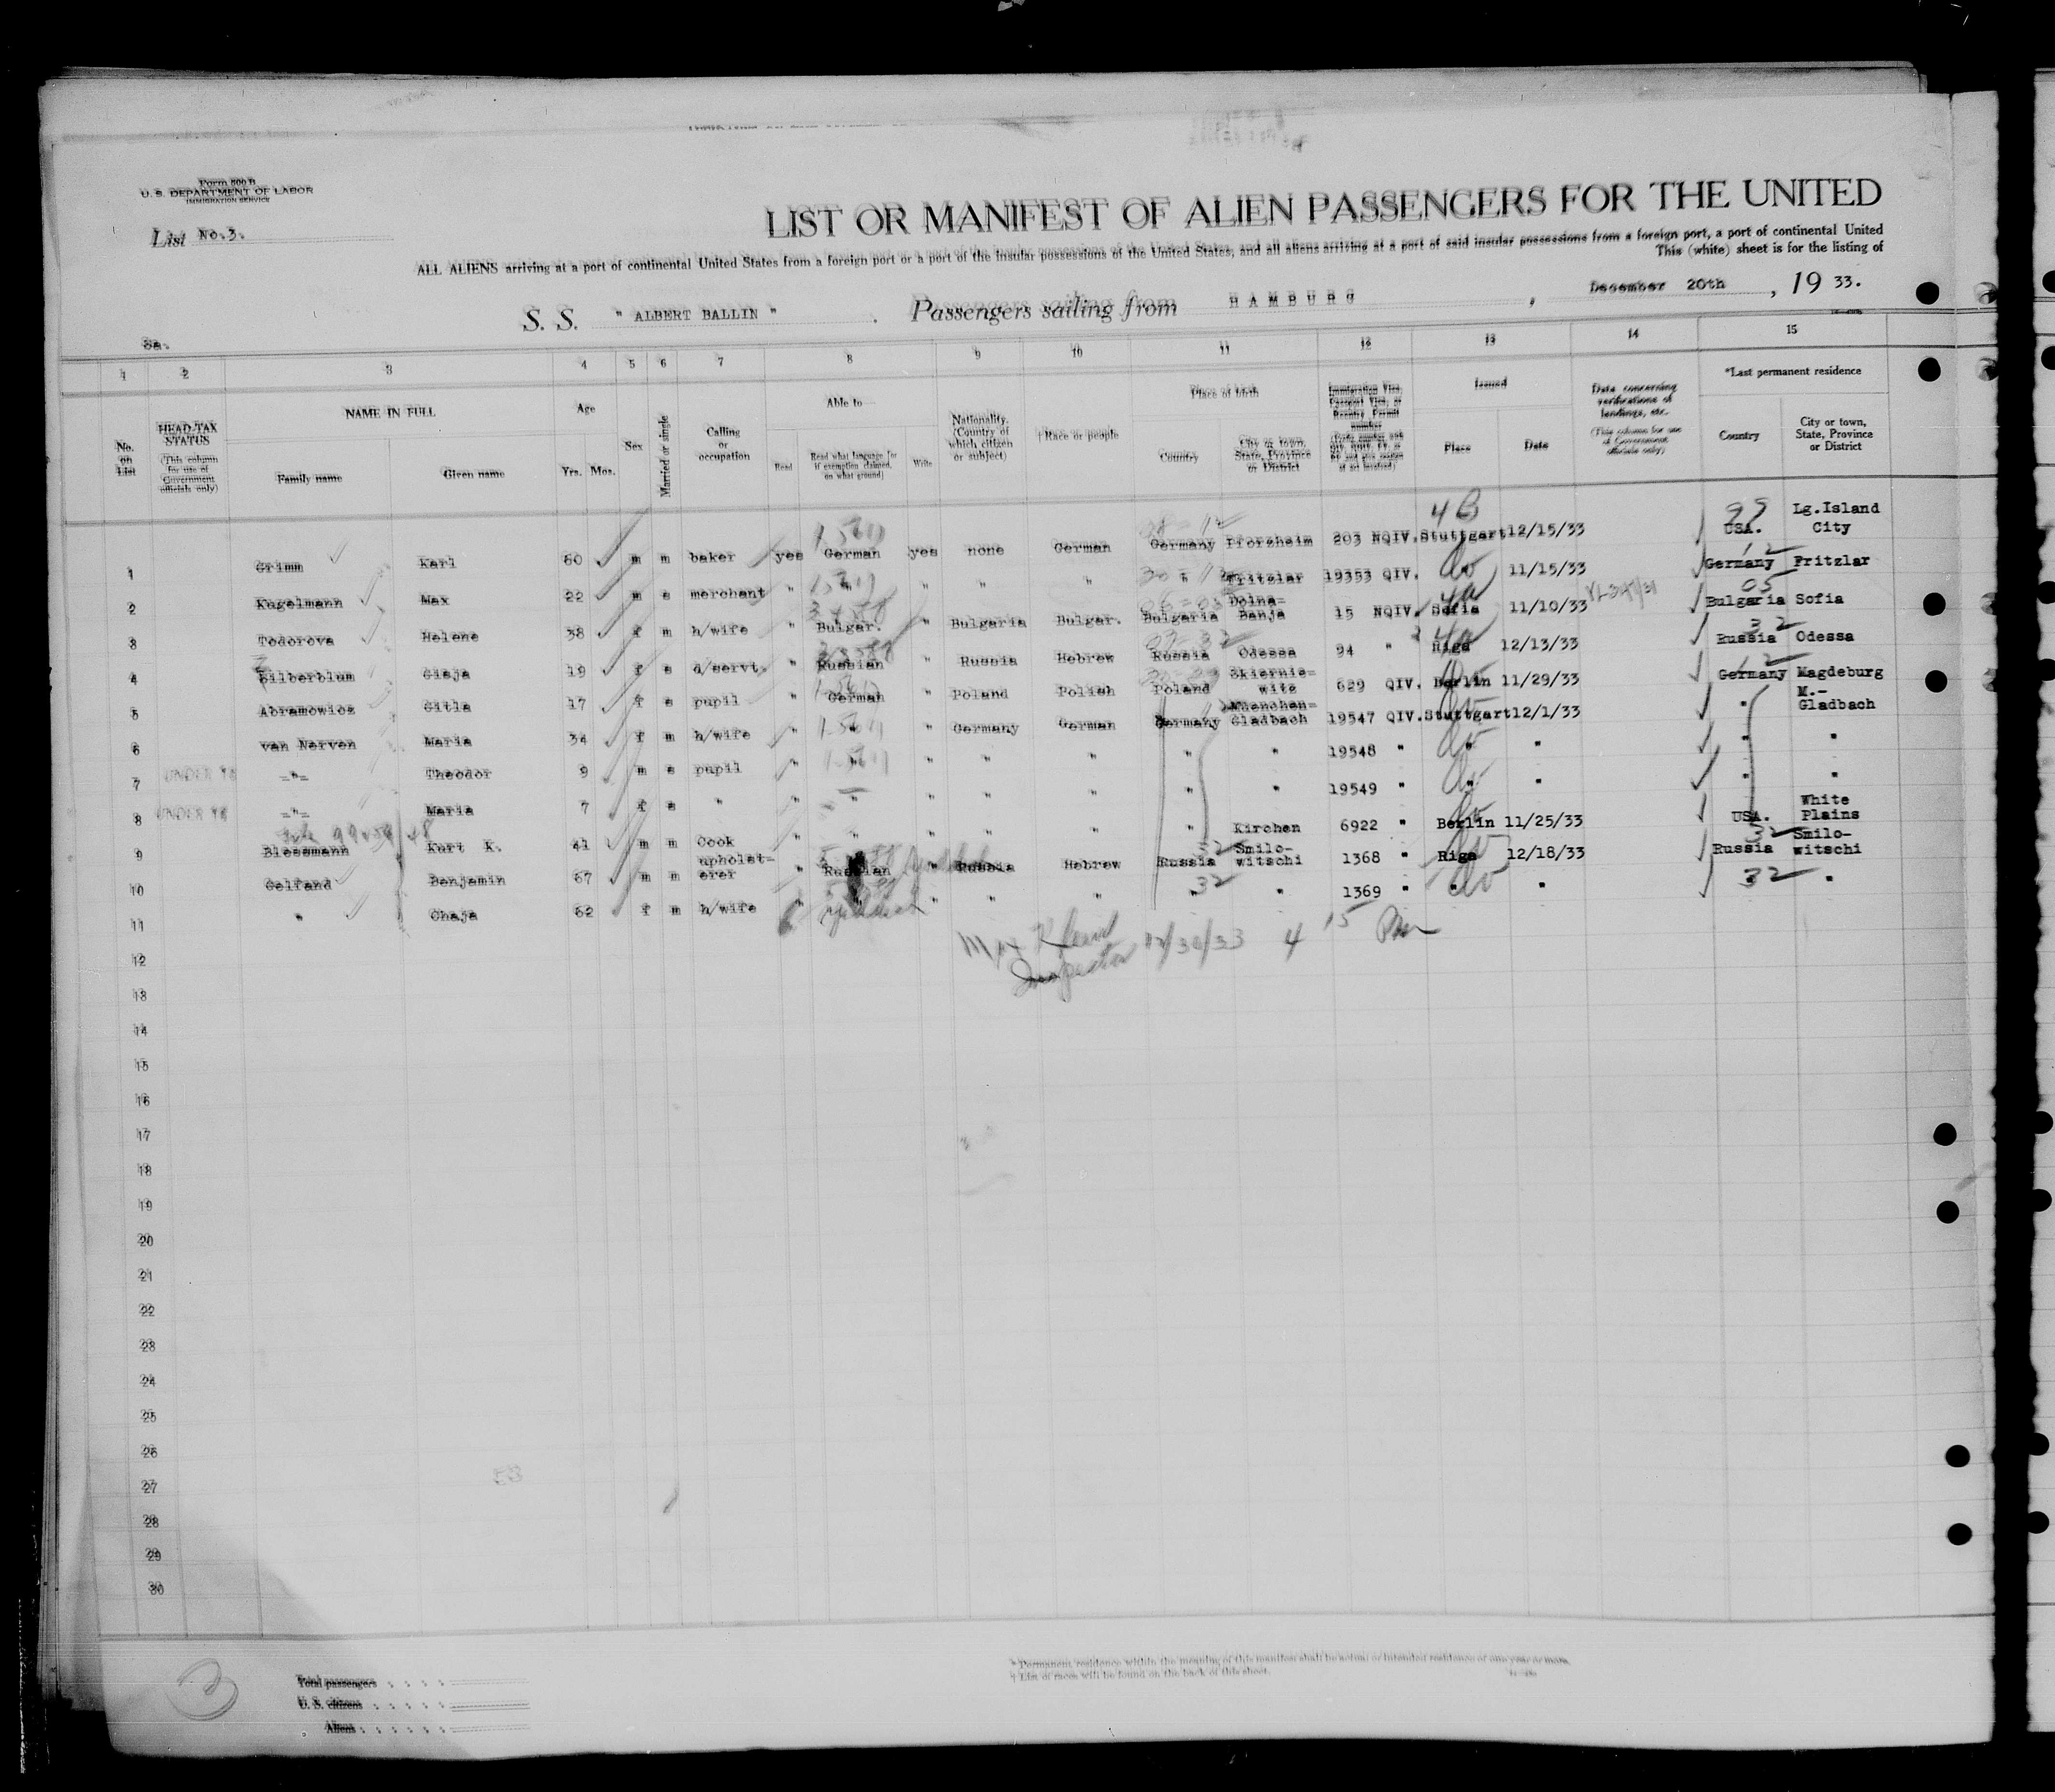 Form 500 B
U. S. DEPARTMENT OF LABOR
IMMIGRATION SERVICE
List No.3.
LIST OR MANIFEST OF ALIEN PASSENGERS FOR THE UNITED
ALL ALIENS arriving at a port of continental United States from a foreign port or a port of the insular possessions of the United States, and all aliens arriving at a port of said insular possessions from a foreign port, a port of continental United
This (white) sheet is for the listing of
S. S. " ALBERT BALLIN " . Passengers sailing from HAMBURG , December 20th , 19 33.
3a.
1 2 3 4 5 6 7 8 9 10 11 12 13 14 15
No. on List
HEAD-TAX STATUS
(This column for use of Government officials only)
NAME IN FULL
Family name Given name
Age
Yrs. Mos.
Sex
Married or single
Calling or occupation
Able to—
Read
Read what language [or if exemption claimed, on what ground]
Write
Nationality. (Country of which citizen or subject)
†Race or people
Place of birth
Country
City or town, State, Province or District
Immigration Visa, Passport Visa, or Reentry Permit number
Issued
Place Date
Data concerning verifications of landings, etc.
(This column for use of Government officials only)
*Last permanent residence
Country
City or town, State, Province or District
1 Grimm Karl 60 m m baker yes German yes none German Germany Pforzheim 203 NQIV. Stuttgart 12/15/33 USA. Lg.Island City
2 Kugelmann Max 22 m s merchant " " " " " " Fritzlar 19353 QIV. 11/15/33 Germany Fritzlar
3 Todorova Helene 38 f m h/wife " Bulgar. " Bulgaria Bulgar. Bulgaria Dolna-Banja 15 NQIV. Sofia 11/10/33 Bulgaria Sofia
4 Silberblum Gisja 19 f s d/servt. " Russian " Russia Hebrew Russia Odessa 94 " Riga 12/13/33 Russia Odessa
5 Abramowicz Gitla 17 f s pupil " German " Poland Polish Poland Skierniewitz 629 QIV. Berlin 11/29/33 Germany Magdeburg
6 van Nerven Maria 34 f m h/wife " " " Germany German Germany Muenchen-Gladbach 19547 QIV. Stuttgart 12/1/33 " M.-Gladbach
7 UNDER 16 -"- Theodor 9 m s pupil " " " " " " " 19548 " " " " "
8 UNDER 16 -"- Maria 7 f s " " " " " " " " 19549 " " " " "
9 Blessmann Kurt K. 41 m m Cook " " " " " " Kirchen 6922 " Berlin 11/25/33 USA. White Plains
10 Gelfand Benjamin 67 m m upholst-erer " Russian " Russia Hebrew Russia Smilo-witschi 1368 " Riga 12/18/33 Russia Smilo-witschi
11 " Chaja 62 f m h/wife " " " " " " " 1369 " " " " "
Inspector 12/30/33 4 15 Pm
12
13
14
15
16
17
18
19
20
21
22
23
24
25
26
27
28
29
30
3
Total passengers
U. S. citizens
Aliens
* Permanent residence within the meaning of this manifest shall be actual or intended residence of one year or more.
† List of races will be found on the back of this sheet.